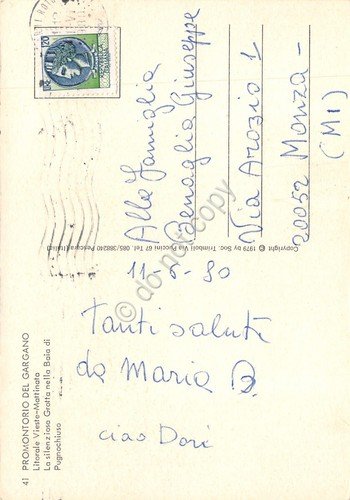 Alla Famiglia
Benaglia Giuseppe
Via Arozio 1
20052 Monza -
(MI)
11-6-80
Tanti saluti
da Maria B.
ciao Dorì
41 PROMONTORIO DEL GARGANO
Litorale Vieste-Mattinata
La silenziosa Grotta nella Baia di
Pugnochiuso
Copyright © 1979 by Soc. Trimboli Via Puccini 67 Tel. 085/388240 Pescara (Italia)
© do not copy